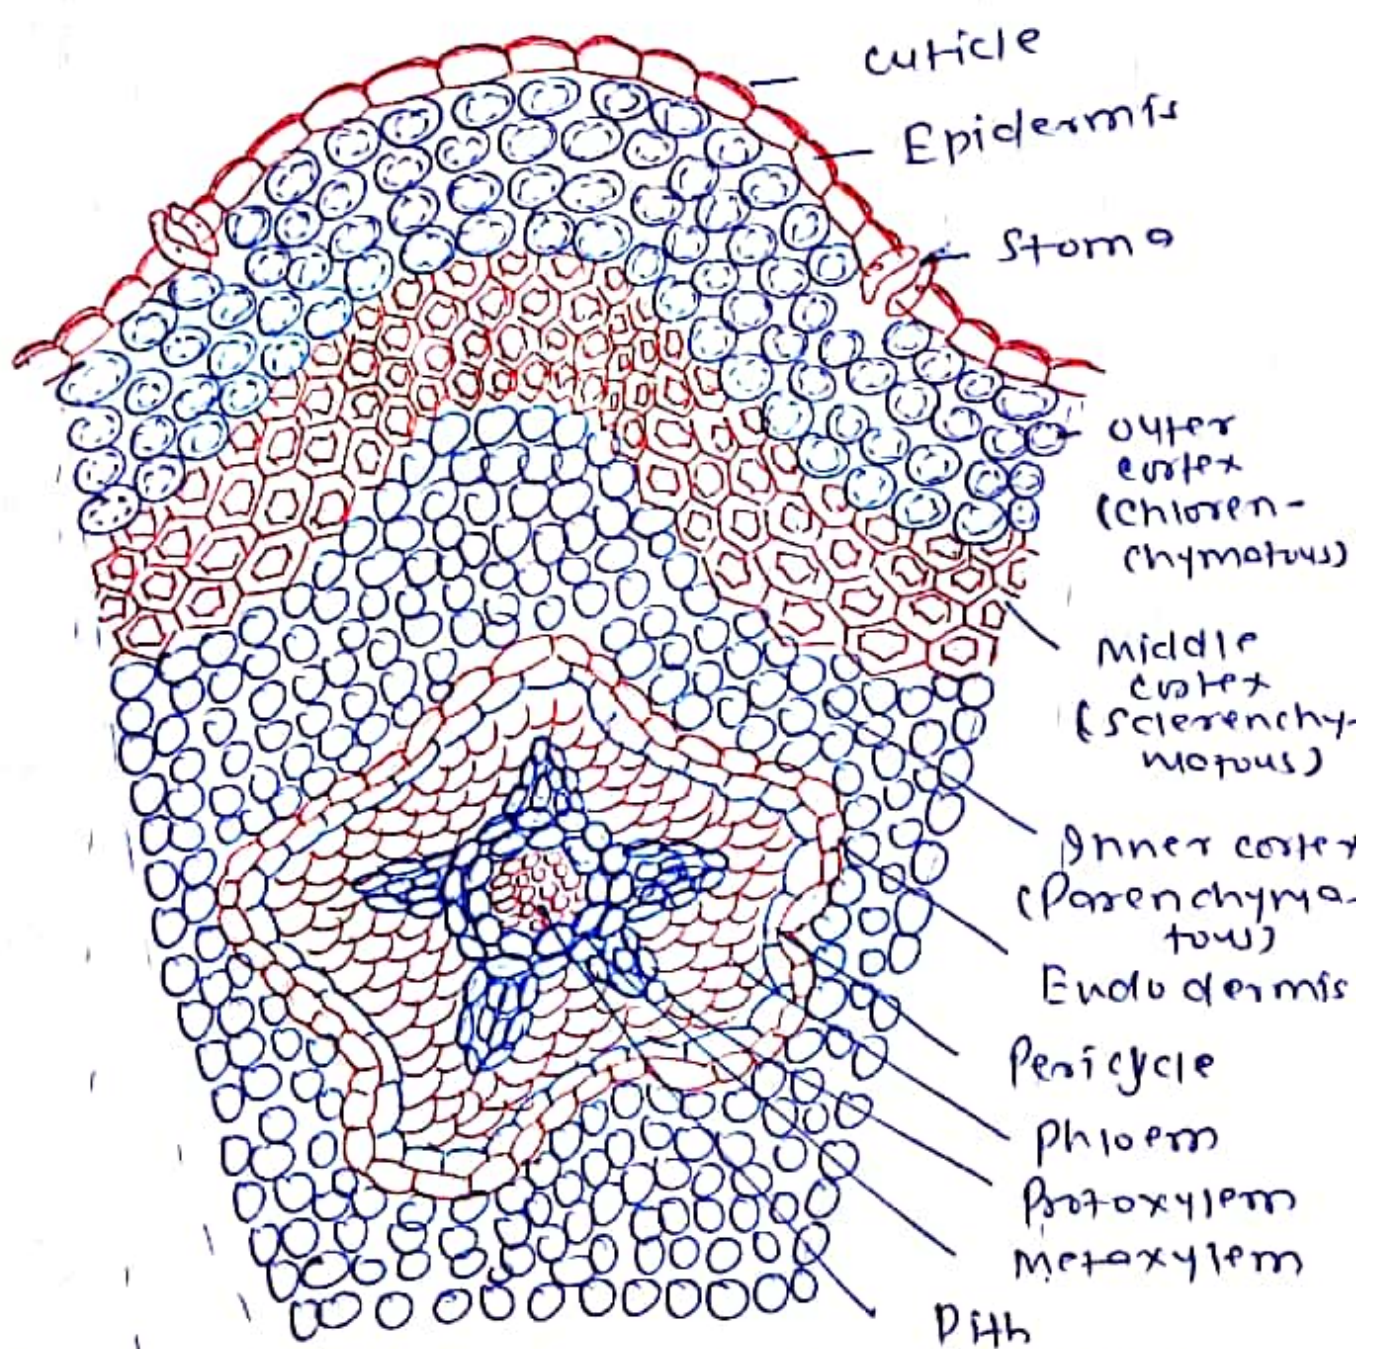 Cuticle
Epidermis
Stoma
Outer
cortex
(Chloren-
chymatous)
Middle
cortex
(Sclerenchy-
matous)
Inner cortex
(Parenchyma-
tous)
Endodermis
Pericycle
Phloem
Protoxylem
Metaxylem
Pith